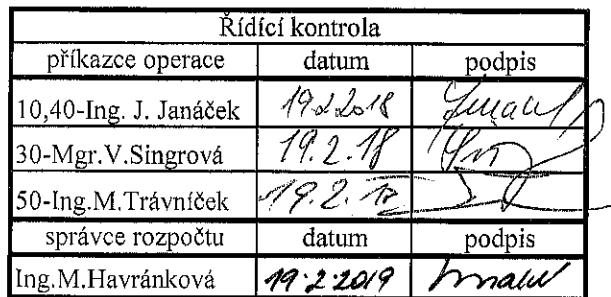 Řídící kontrola
příkazce operace datum podpis
10,40-Ing. J. Janáček 19.2.2018
30-Mgr.V.Singrová 19.2.18
50-Ing.M.Trávníček 19.2.18
správce rozpočtu datum podpis
Ing.M.Havránková 19.2.2019